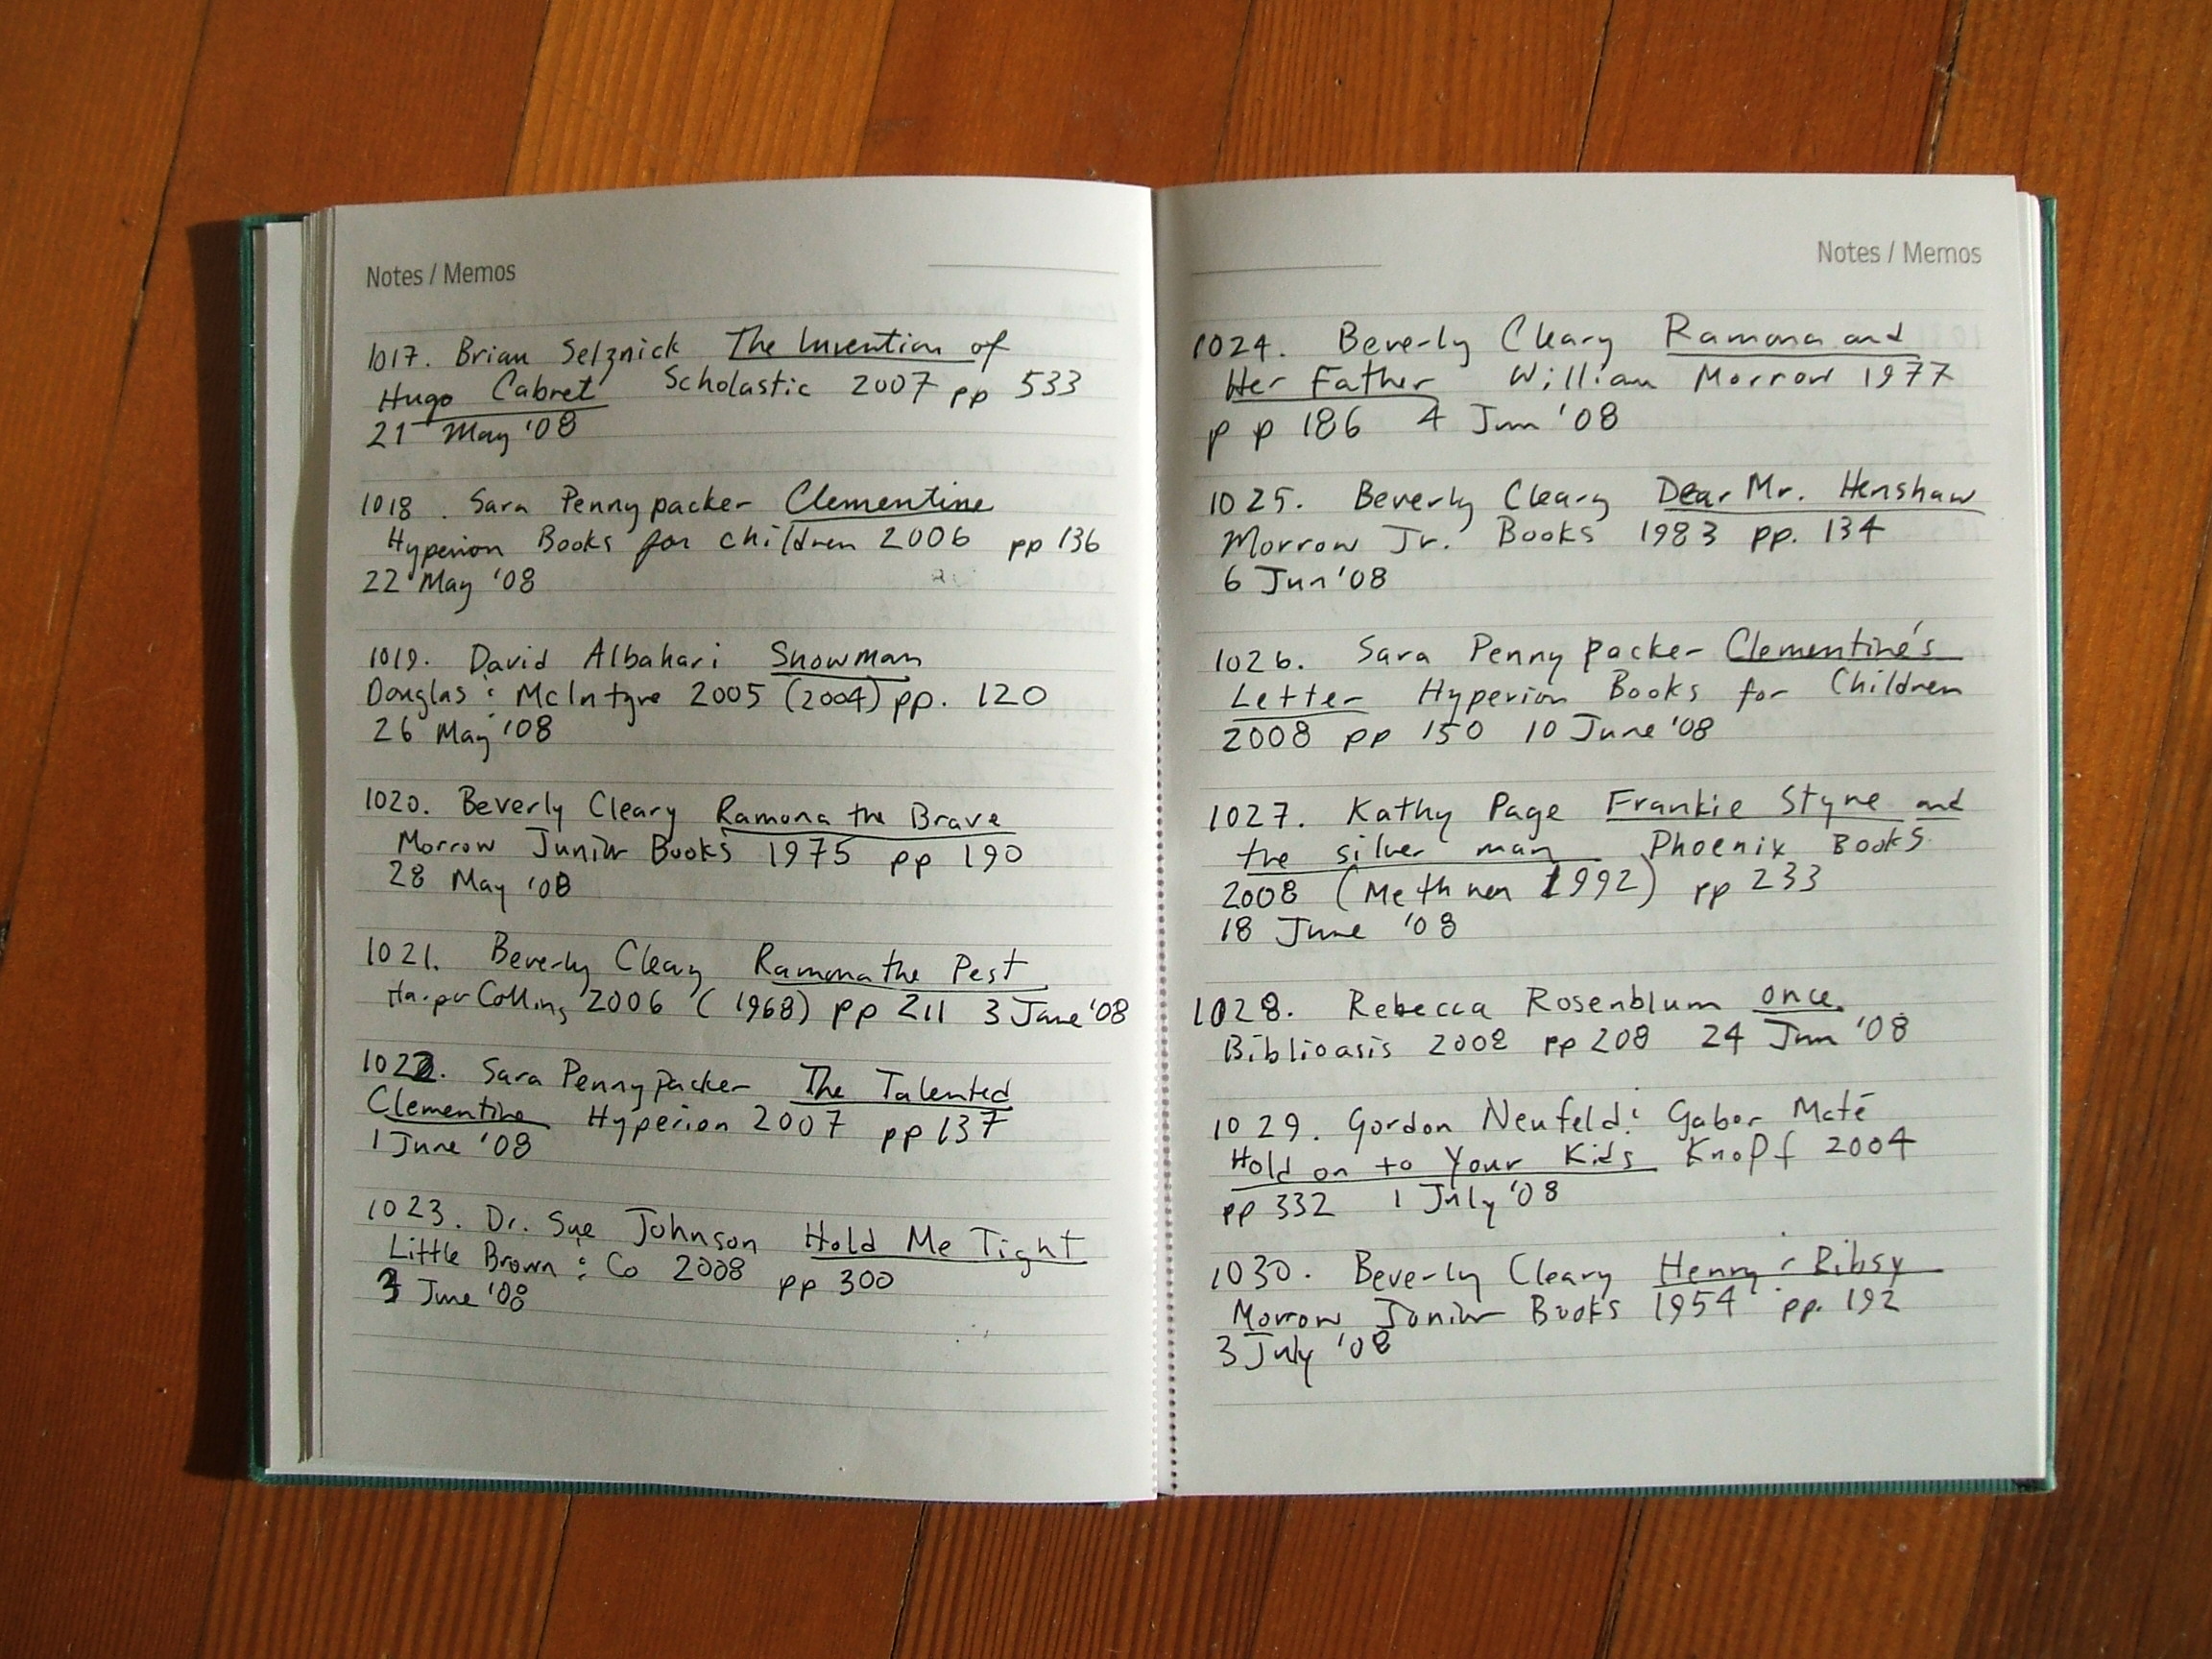 Notes / Memos
1017. Brian Selznick The Invention of
Hugo Cabret Scholastic 2007 pp 533
21 May '08
1018. Sara Pennypacker Clementine
Hyperion Books for Children 2006 pp 136
22 May '08
1019. David Albahari Snowman
Douglas & McIntyre 2005 (2004) pp. 120
26 May '08
1020. Beverly Cleary Ramona the Brave
Morrow Junior Books 1975 pp 190
28 May '08
1021. Beverly Cleary Ramona the Pest
HarperCollins 2006 (1968) pp 211 3 June '08
1022. Sara Pennypacker The Talented
Clementine Hyperion 2007 pp 137
1 June '08
1023. Dr. Sue Johnson Hold Me Tight
Little Brown & Co 2008 pp 300
June '08
Notes / Memos
1024. Beverly Cleary Ramona and
Her Father William Morrow 1977
pp 186 4 Jun '08
1025. Beverly Cleary Dear Mr. Henshaw
Morrow Jr. Books 1983 pp. 134
6 Jun '08
1026. Sara Pennypacker Clementine's
Letter Hyperion Books for Children
2008 pp 150 10 June '08
1027. Kathy Page Frankie Styne and
the silver man Phoenix Books
2008 (Methuen 1992) pp 233
18 June '08
1028. Rebecca Rosenblum once
Biblioasis 2008 pp 208 24 Jun '08
1029. Gordon Neufeld & Gabor Maté
Hold on to Your Kids Knopf 2004
pp 332 1 July '08
1030. Beverly Cleary Henry & Ribsy
Morrow Junior Books 1954 pp. 192
3 July '08